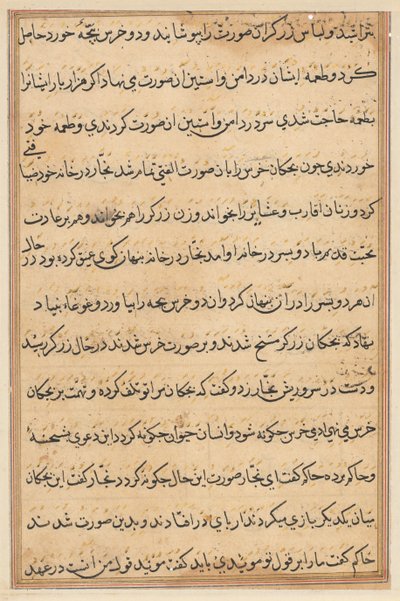 بتراشید و لباس زرگر ان صورت را بپوشانید و دو خرس بچهٔ خورد حاصل
کرد و طعمه ایشان در دامن و استین ان صورت می نهاد اکر هزار بار ایشانرا
بطعمه حاجت شدی سر در دامن و آستین ان صورت کردندی و طعمه خود
خوردندی چون بجکان خرس را بان صورت الفتی تمام شد نجّار در خانه خود ضیافتی
کرد و زنان اقارب و عشایر را بخواند و زن زرکر را هم بخواند و هم بر عادت
محبت قدیم با دو پسر در خانه او آمد نجار در خانه پنهان کوی عمیق کرده بود در حال
آن هر دو پسر را در آن پنهان کرد و ان دو خرس بچه را بیاورد و غوغا بنیاد
نهاد که بجکان زرکر مسخ شدند و بر صورت خرس شدند در حال زرکر رسید
و دست در سر و ریش نجّار زد و کفت که بجکان مرا تو تلف کرده و تهمت بر بجکان
خرس می نهی ادمی خرس جکونه شود و انسان حیوان جکونه کردد این دعوی شحنهٔ
و حاکم برده حاکم کفت ای نجّار صورت این حال جکونه کردد نجّار کفت این بجکان
میان یکدیکر بازی میکردند از پای در افتادند و بدین صورت شدند
حاکم کفت ما را بر قول تو مویدی باید کفت موید قول من آنست در عهد